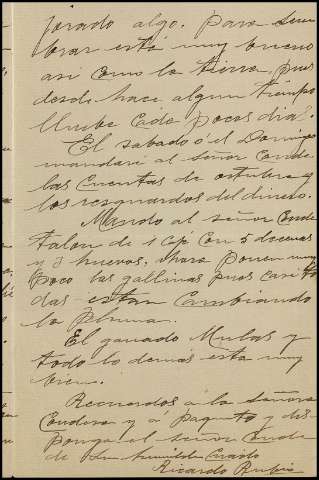 jorado algo. Para sem
brar está muy bueno
asi como la tierra, pues
desde hace algun tiempo
llueve cada pocos dias.
El sabado o el Domingo
mandaré al señor Conde
las Cuentas de octubre y
los resguardos del dinero.
Mando al señor Conde
talon de 1 C/ con 5 docenas
y 3 huevos, ahora ponen muy
poco las gallinas pues casi to
das estan Cambiando
la Pluma.
El ganado Mulas y
todo lo demas está muy
bien.
Recuerdos á la señora
Condesa y á Paquito y dis
ponga el señor Conde
de su humilde Criado
Ricardo Rubio